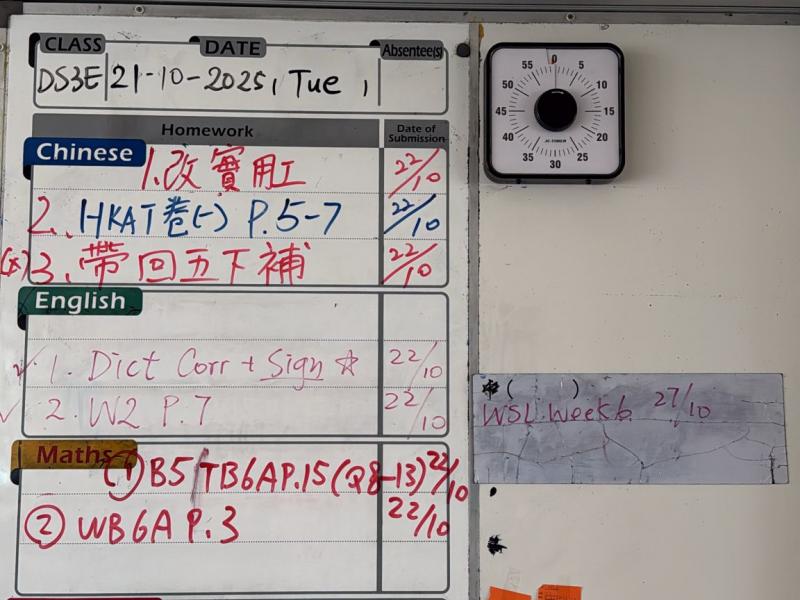 CLASS DATE Absentee(s)
DS3E 21-10-2025, Tue,
Homework Date of Submission
Chinese
1. 改實用工 22/10
2. HKAT卷(一) P.5-7 22/10
3. 帶回五下補 22/10
English
1. Dict Corr + Sign ☆ 22/10
2. W2 P.7 22/10
Maths
① B5 TB6A P.15 (Q8-13) 22/10
② WB6A P.3 22/10
0 5 10 15 20 25 30 35 40 45 50 55
( )
WSL Week6 27/10